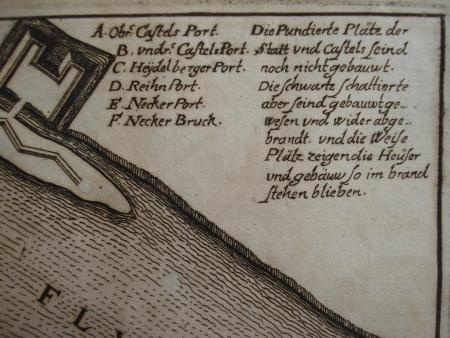 A. Obr. Castels Port.
B. vndr. Castels Port.
C. Heÿdelberger Port.
D. Reihn Port.
E. Necker Port.
F. Necker Bruck.
Die Pundierte Plätz der
Statt vnd Castels seind
noch nicht gebauwt.
Die schwartz schattierte
aber seind gebauwt ge-
wesen vnd wider abge-
brandt. vnd die Weise
Plätz zeigen die Heüser
vnd gebäuw so im brand
stehen blieben.
FLV